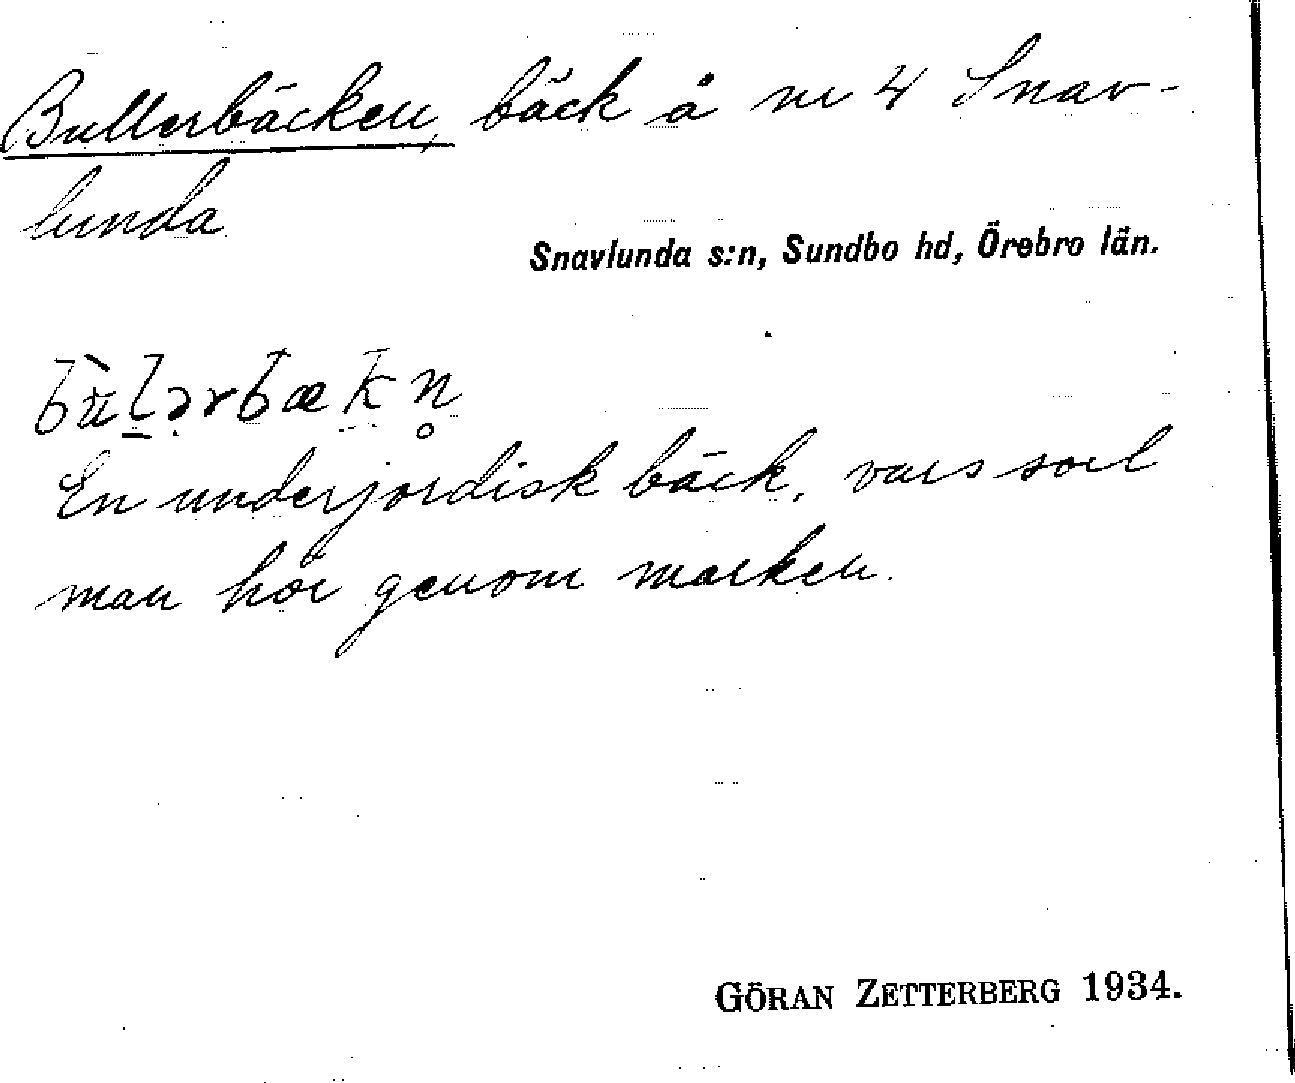 Bullerbäcken, bäck å nr 4 Snav-
lunda.
Snavlunda s:n, Sundbo hd, Örebro län.
bùlərbækn̥
En underjordisk bäck, vars sorl
man hör genom marken.
GÖRAN ZETTERBERG 1934.